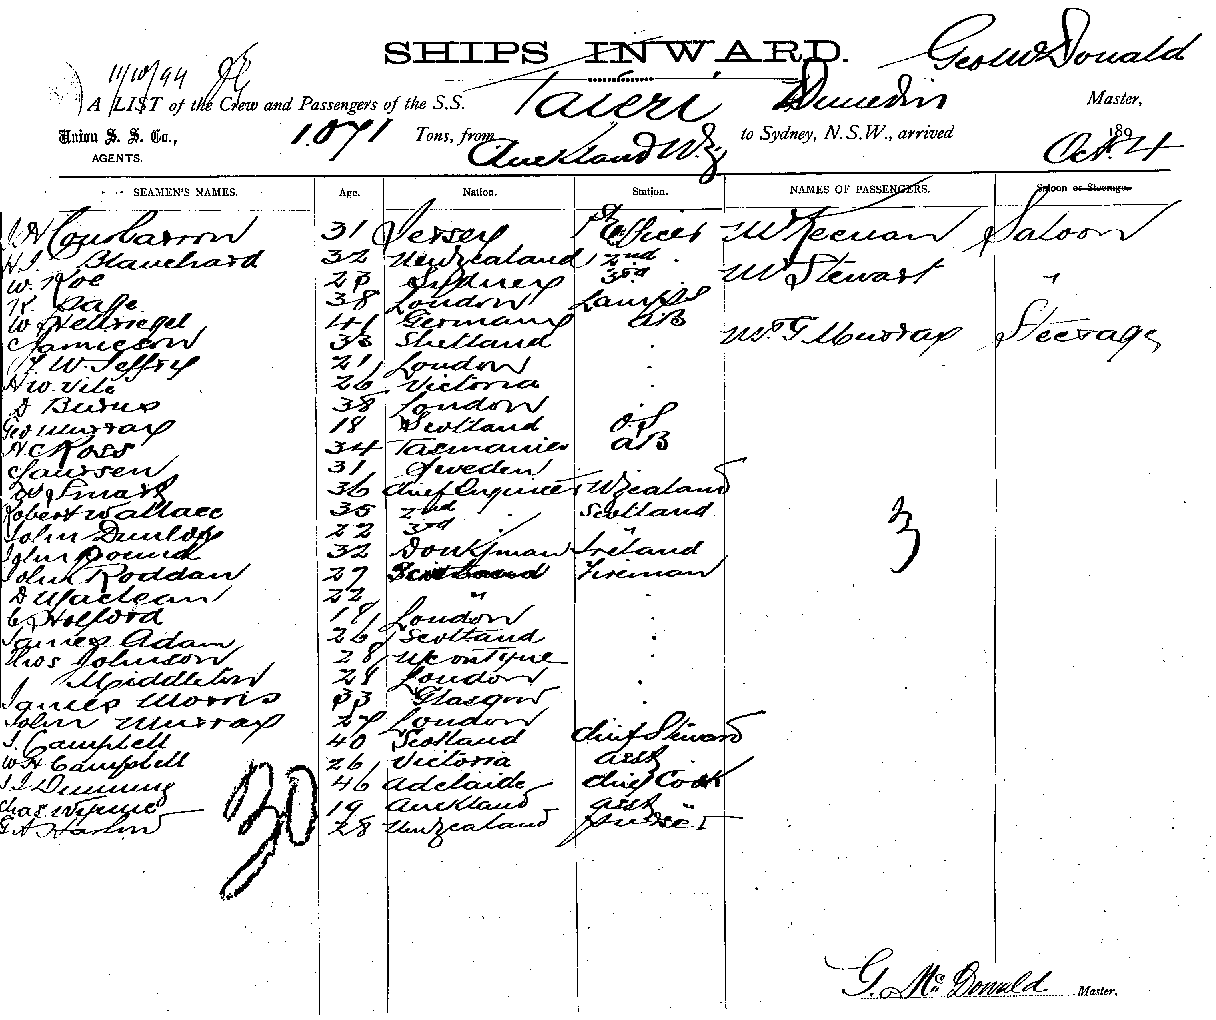 SHIPS INWARD.
11/10/94
Geo McDonald
A LIST of the Crew and Passengers of the S.S. Taieri Dunedin Master,
Union S. S. Co., AGENTS.
1.071 Tons, from Auckland N.Z. to Sydney, N.S.W., arrived Oct. 4 189
SEAMEN'S NAMES. Age. Nation. Station. NAMES OF PASSENGERS. Saloon or Steerage.
31 Jersey 1st Officer Mr Keenan Saloon
Blanchard 32 New Zealand 2nd
W. Roe 28 Sydney 3rd Mr Stewart "
Page 38 London Lamps
W Hellriegel 41 Germany AB
Jamieson 33 Shetland Mr G Murray Steerage
W. Jeffry 21 London
H W. Vile 26 Victoria
D Burns 38 London
Geo Murray 18 Scotland OS
H C Ross 34 Tasmania AB
Laursen 31 Sweden
W Smart 36 Chief Engineer N Zealand
Robert Wallace 35 2nd Scotland
John Dunlop 22 3rd "
John Pound 32 Donkyman Ireland
John Roddan 27 Scotland Fireman
D Maclean 22 "
Holford 19 London
James Adam 26 Scotland
Thos Johnson 28
Middleton 28 London
James Morris 33 Glasgow
John Murray 27 London
J. Campbell 40 Scotland Chief Steward
W H Campbell 26 Victoria asst
Dunning 46 Adelaide Chief Cook
Chas Wynne 19 Auckland asst "
28 New Zealand Purser
3
30
G. McDonald Master.